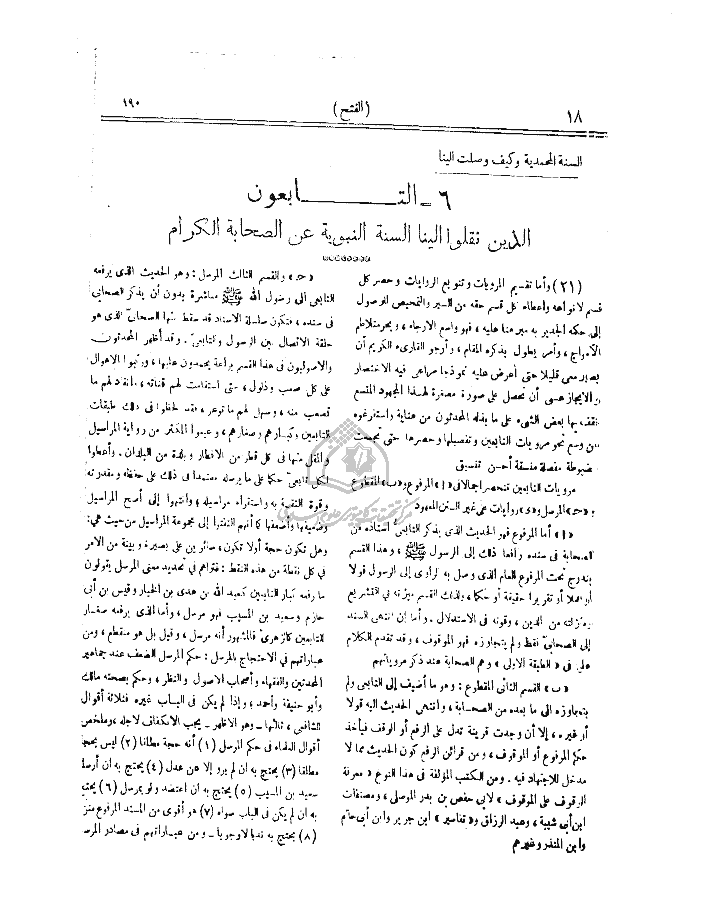 ١٨
(الفتح)
١٩٠
السنة المحمدية وكيف وصلت الينا
٦ ـ التـــــــابعون
الذين نقلوا الينا السنة النبوية عن الصحابة الكرام
(٢١) وأما تقسيم المرويات وتنويع الروايات وحصر كل
قسم لانواعه وإعطاء كل قسم حقه من السبر والتمحيص للوصول
إلى حكمه الجدير به ميزهنا عليه ، فهو واسع الارجاء ، وبحر متلاطم
الأمواج ، وأمر يطول بذكره المقام ، وأرجو القارىء الكريم أن
يصبر معى قليلا حتى أعرض عليه نموذجا مراعى فيه الاختصار
والايجاز عسى أن نحصل على صورة مصغرة لهذا المجهود المتسع
نقف بها بعض الشىء على ما بذله المحدثون من عناية واستفرغوه
من وسع نحو مرويات التابعين وتفصيلها وحصرها حتى تجمعت
ضبوطة مفصلة منسقة أحسن تنسيق
مرويات التابعين تنحصر إجمالا فى «ا» المرفوع و«ب» المقطوع
و«ح» المرسل و«د» روايات على غير السنن المعهود
«ا» أما المرفوع فهو الحديث الذى يذكر التابعى أستاذه من
الصحابة فى سنده رافعا ذلك إلى الرسول ﷺ ، وهذا القسم
يندرج تحت المرفوع العام الذى وصل به الراوى إلى الرسول قولا
أو عملا أو تقريرا حقيقة أو حكما ، ولذلك القسم ميزته فى التشريع
ومنزلته من الدين ، وقوته فى الاستدلال . وأما إن انتهى السند
إلى الصحابى فقط ولم يتجاوزه فهو الموقوف ، وقد تقدم الكلام
على فى «الطبقة الاولى» وهم الصحابة عند ذكر مروياتهم
«ب» القسم الثانى المقطوع : وهو ما أضيف إلى التابعى ولم
يتجاوزه الى ما بعده من الصحابة ، وانتهى الحديث اليه قولا
أو غيره ، إلا أن وجدت قرينة تدل على الرفع أو الوقف فيأخذ
حكم المرفوع أو الموقوف ، ومن قرائن الرفع كون الحديث مما لا
مدخل للاجتهاد فيه . ومن الكتب المؤلفة فى هذا النوع «معرفة
الوقوف على الموقوف» لابى حفص بن بدر الموصلى ، ومصنفات
ابن أبى شيبة ، وعبد الرزاق و«تفاسير» ابن جرير وابن أبى حاتم
وابن المنذر وغيرهم
«ح» والقسم الثالث المرسل : وهو الحديث الذى يرفعه
التابعى الى رسول الله ﷺ مباشرة بدون أن يذكر الصحابى
فى سنده ، فتكون سلسلة الاسناد قد سقط منها الصحابى الذى هو
حلقة الاتصال بين الرسول والتابعى . وقد أظهر المحدثون
والاصوليون فى هذا القسم براعة يحمدون عليها ، وركبوا الاهوال
على كل صعب وذلول ، حتى استقامت لهم قناته ، وانقاد لهم ما
تصعب منه ، وسهل لهم ما توعر ، فقد لحظوا فى ذلك طبقات
التابعين وكبارهم وصغارهم ، وعينوا المكثر من رواية المراسيل
والمقل منها فى كل قطر من الاقطار وبلدة من البلدان . وأعطوا
لكل تابعى حكما على ما يرسله معتمدا فى ذلك على حفظه ومقدرته
وقوة الثقة به واستقراء مراسيله ، وانتبهوا إلى أصح المراسيل
وضعيفها وأضعفها كما أنهم التفتوا إلى مجموعة المراسيل من حيث هى:
وهل تكون حجة أولا تكون ، صائرين على بصير ، وبينة من الامر
فى كل نقطة من هذه النقط : فتراهم فى تحديد معنى المرسل يقولون
ما رفعه كبار التابعين كعبيد الله بن عدى بن الخيار وقيس بن أبى
حازم وسعيد بن المسيب فهو مرسل ، وأما الذى يرفعه صغار
التابعين كالزهرى فالمشهور أنه مرسل ، وقيل بل هو منقطع ، ومن
عباراتهم فى الاحتجاج بالمرسل : حكم المرسل الضعف عند جماهير
المحدثين والفقهاء وأصحاب الاصول والنظر ، وحكم بصحته مالك
وأبو حنيفة وأحمد ، وإذا لم يكن فى الباب غيره فثلاثة أقوال
الشافعى ، ثالثها ــ وهو الاظهر ــ يجب الانكفاف لاجله ، وملخص
أقوال العلماء فى حكم المرسل (١) أنه حجة مطلقا (٢) ليس بحجة
مطلقا (٣) يحتج به ان لم يرو إلا عن عدل (٤) يحتج به ان أرسله
سعيد بن المسيب (٥) يحتج به ان اعتضد ولو بمرسل (٦) يحتج
به ان لم يكن فى الباب سواه (٧) هو أقوى من المسند المرفوع
(٨) يحتج به ندبا لا وجوبا ــ ومن عباراتهم فى مصادر المرسل